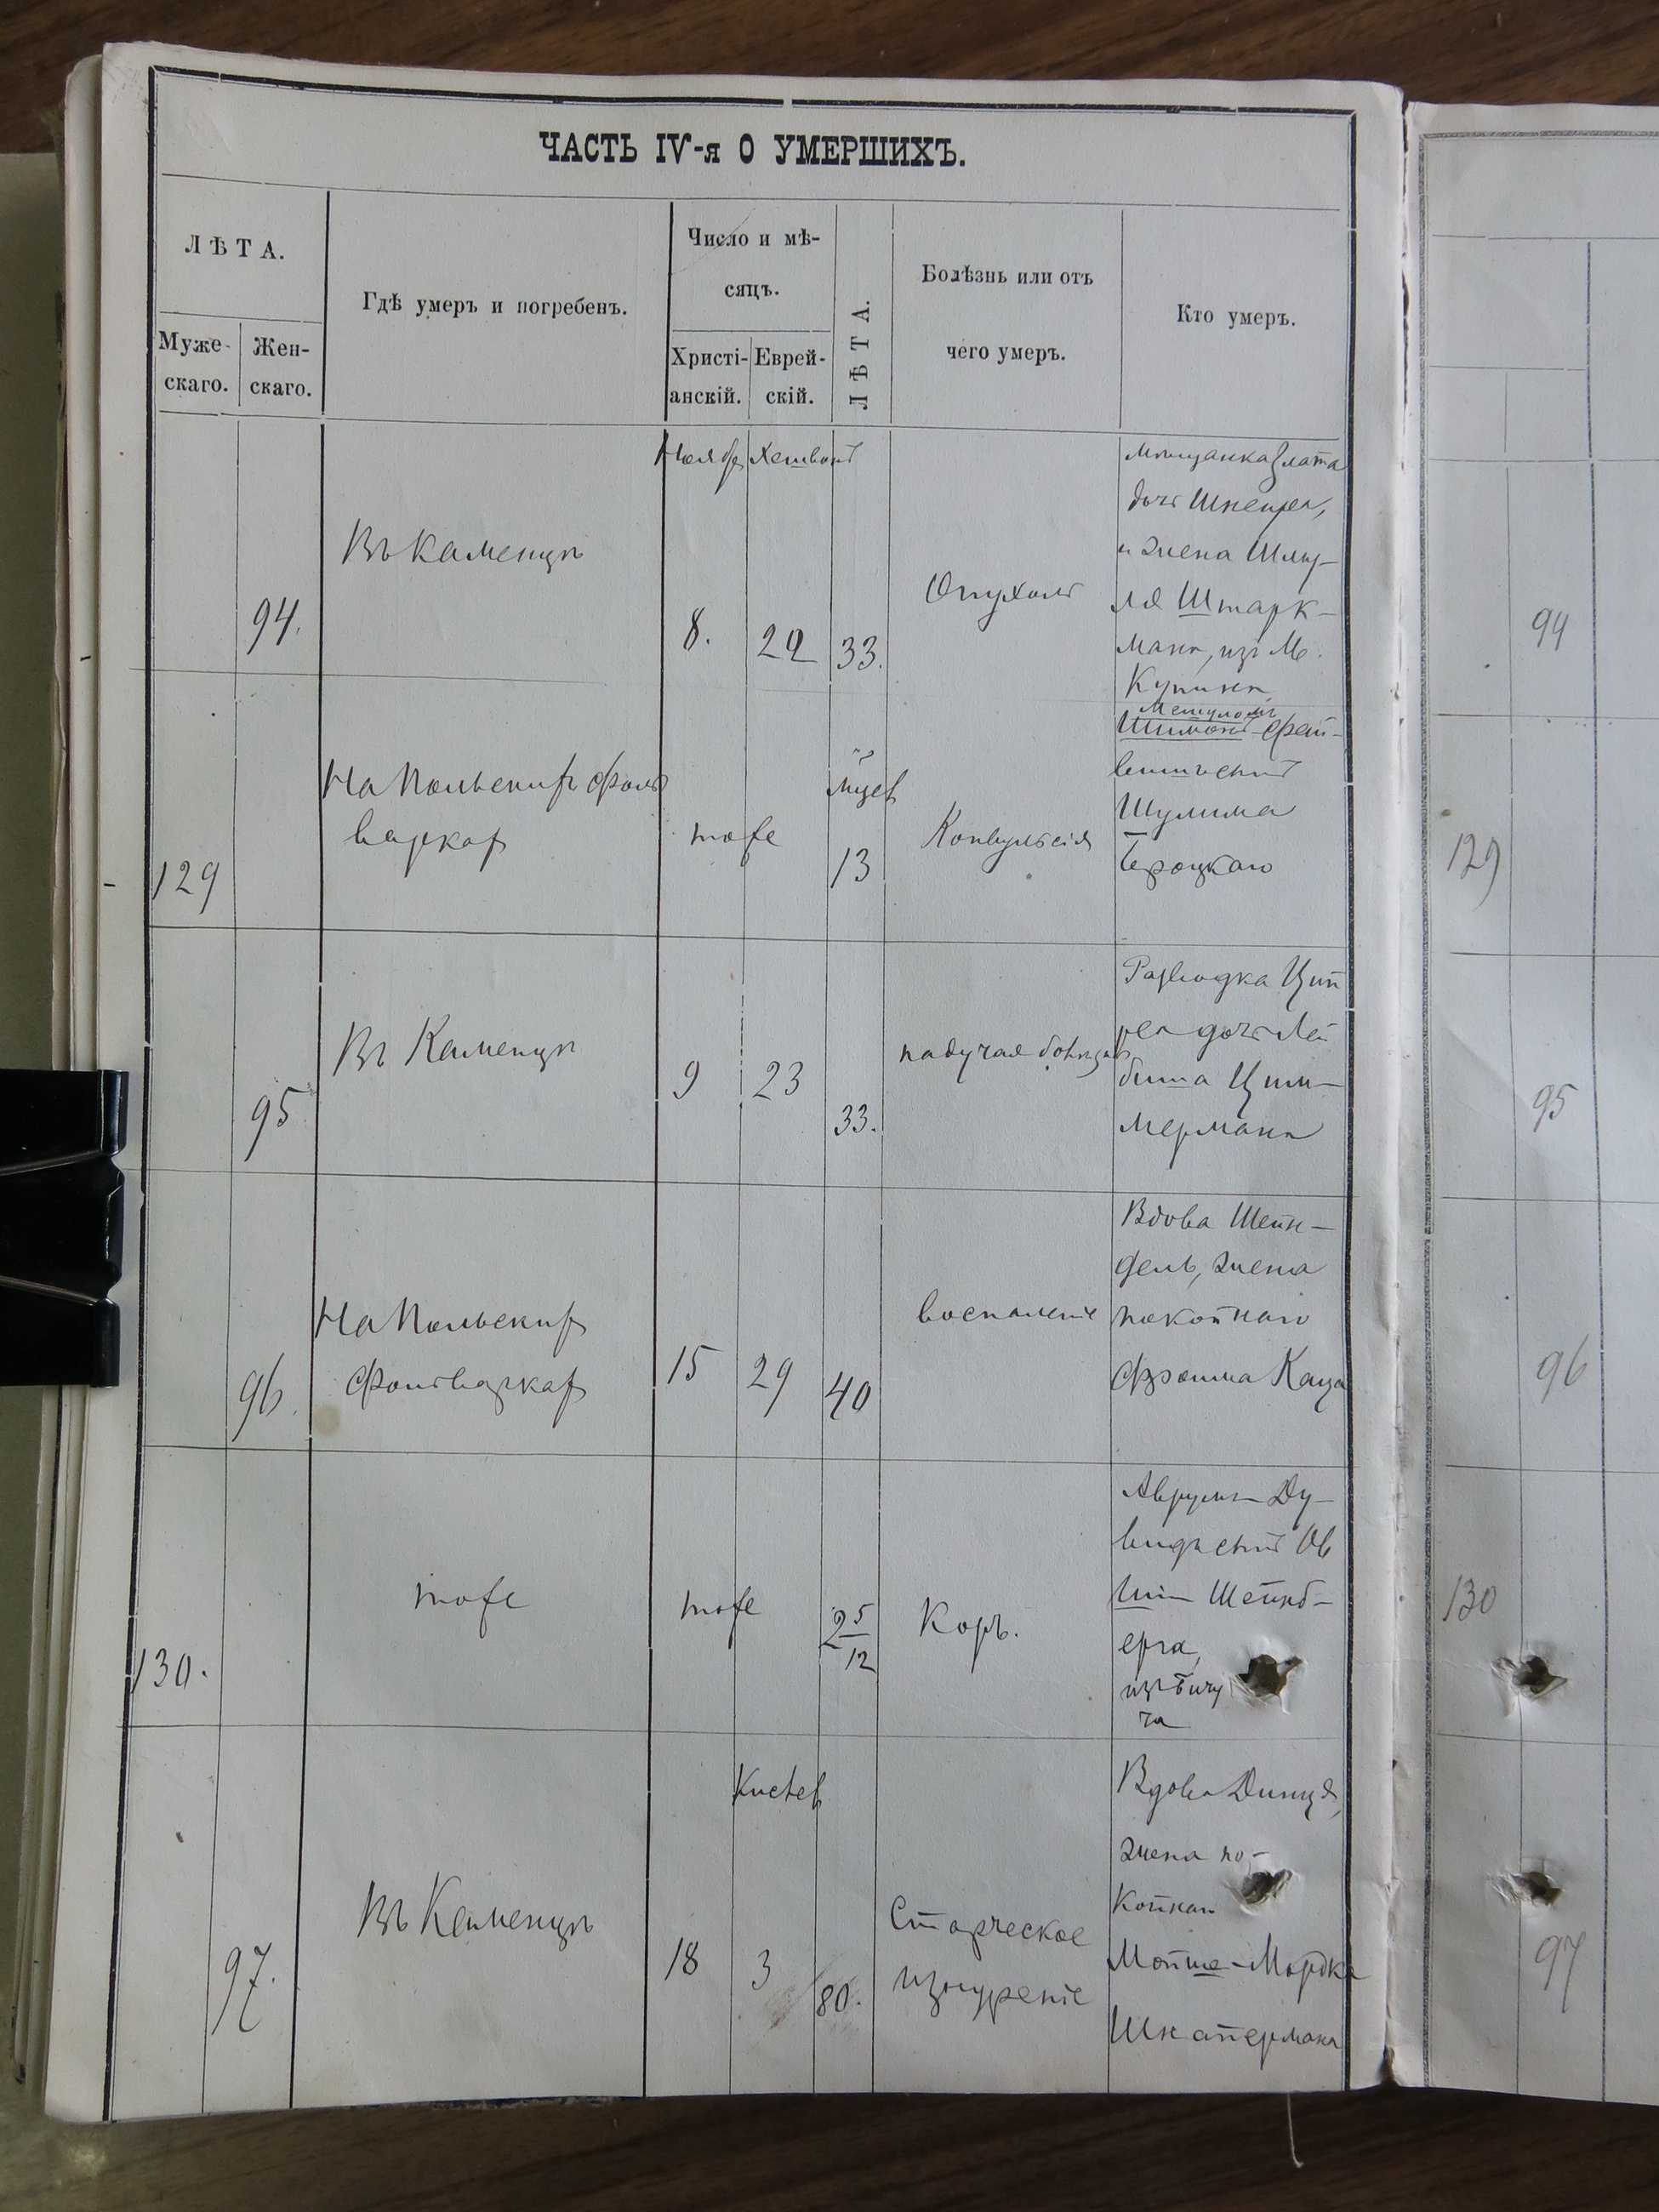 ЧАСТЬ IV-я О УМЕРШИХЪ.
ЛѢТА.
Муже-
скаго.
Жен-
скаго.
Гдѣ умеръ и погребенъ.
Число и мѣ-
сяцъ.
Христі-
анскій.
Еврей-
скій.
ЛѢТА.
Болѣзнь или отъ
чего умеръ.
Кто умеръ.
94.
Въ Каменцѣ
Ноябр
8.
Хешвонт
22
33.
Опухоль
мѣщанка Злата
дочь
и жена Шму-
ля Штарк-
мана, изъ М.
Купина
129
На Польскихъ Фоль
варках
тоже
мцев
13
Конвульсія
Мешуломъ
Шимонъ-Фай-
вишъ сынъ
Шулима
Бероцкаго
95
Въ Каменцѣ
9
23
33.
падучая болѣзнь
Разводка Цип
ра дочь Лей
биша Цим-
мермана
96.
На Польских
Фольварках
15
29
40
воспаленіе
Вдова Шейн-
дель, жена
покойнаго
Фроима Каца
130.
тоже
тоже
2 5/12
Корь.
Аврумъ-Ду-
видъ сынъ Ов
шія Шейнб-
ерга,
изъ
97.
Въ Каменцѣ
18
Кислев
3
80.
Старческое
изнуреніе
Вдова Динця,
жена по-
койнаго
Мойше-Мордка
Шнайермана
94
129
95
96
130
97